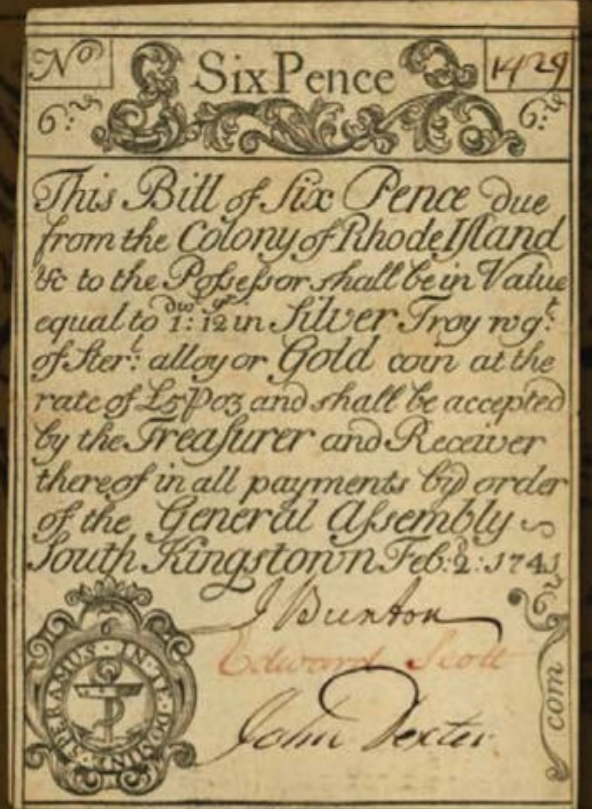 No Six Pence 1429
6:d 6:d
This Bill of Six Pence due
from the Colony of Rhode Iſland
&c to the Poſseſsor shall be in Value
equal to 1:dwt 12gr in Silver Troy wgt:
of Ster: alloy or Gold coin at the
rate of £5 P oz and shall be accepted
by the Treaſurer and Receiver
thereof in all payments by order
of the General Aſsembly
South Kingstown Feb: 2: 1741
J Bunton
Edward Scott
John Dexter
com
IN TE DOMINE SPERAMUS